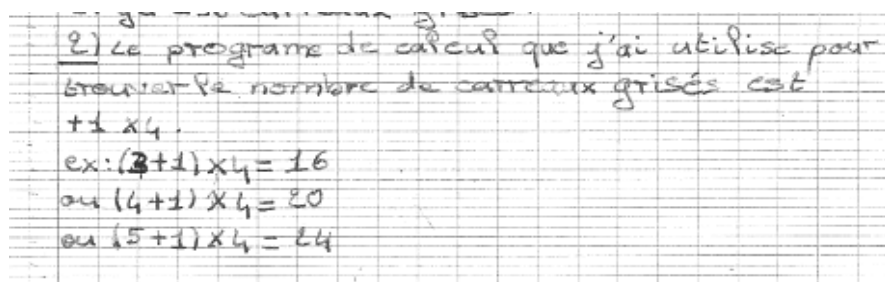 2) Le programe de calcul que j'ai utilisé pour
trouver le nombre de carreaux grisés est
+1 x4.
ex: (3+1) x4 = 16
ou (4+1) x4 = 20
ou (5+1) x4 = 24